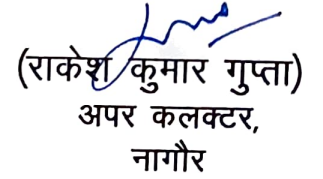 (राकेश कुमार गुप्ता)
अपर कलक्टर,
नागौर